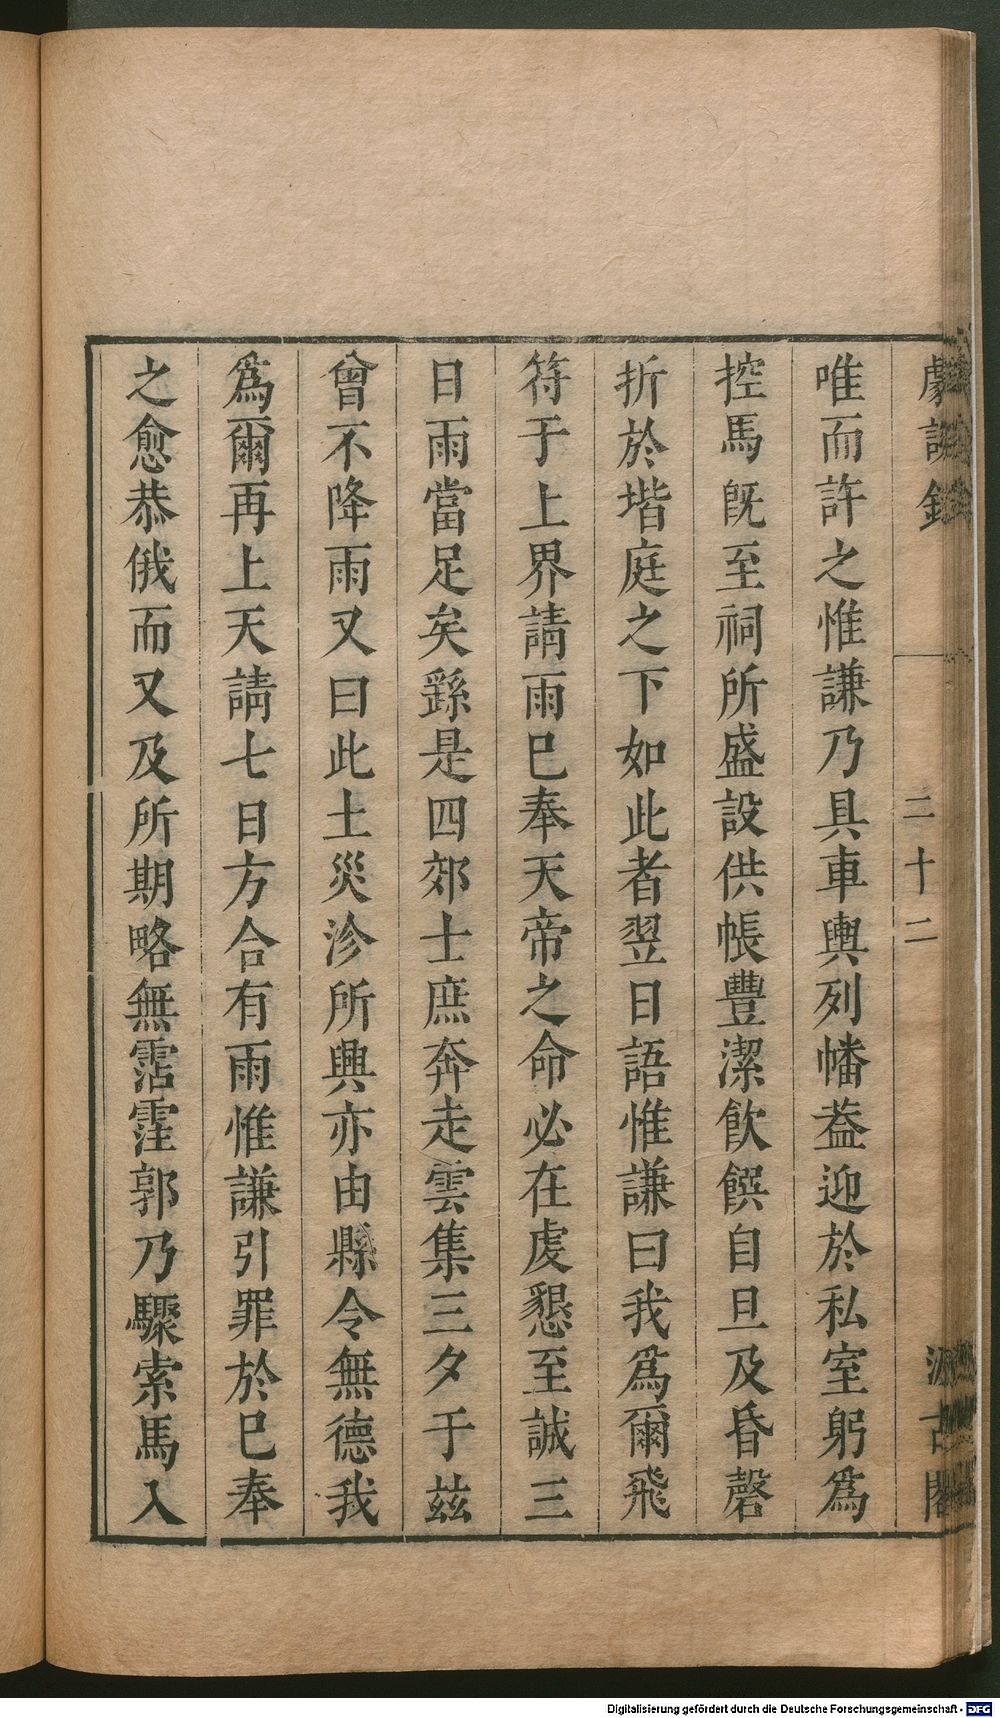 劇談録
二十二
汲古閣
唯而許之惟謙乃具車輿列幡葢迎於私室躬爲
控馬旣至祠所盛設供帳豐潔飮饌自旦及昏磬
折於堦庭之下如此者翌日語惟謙曰我爲爾飛
符于上界請雨已奉天帝之命必在虔懇至誠三
日雨當足矣繇是四郊士庶奔走雲集三夕于兹
曾不降雨又曰此土災沴所興亦由縣令無德我
爲爾再上天請七日方合有雨惟謙引罪於已奉
之愈恭俄而又及所期略無霑霔郭乃驟索馬入
Digitalisierung gefördert durch die Deutsche Forschungsgemeinschaft - DFG